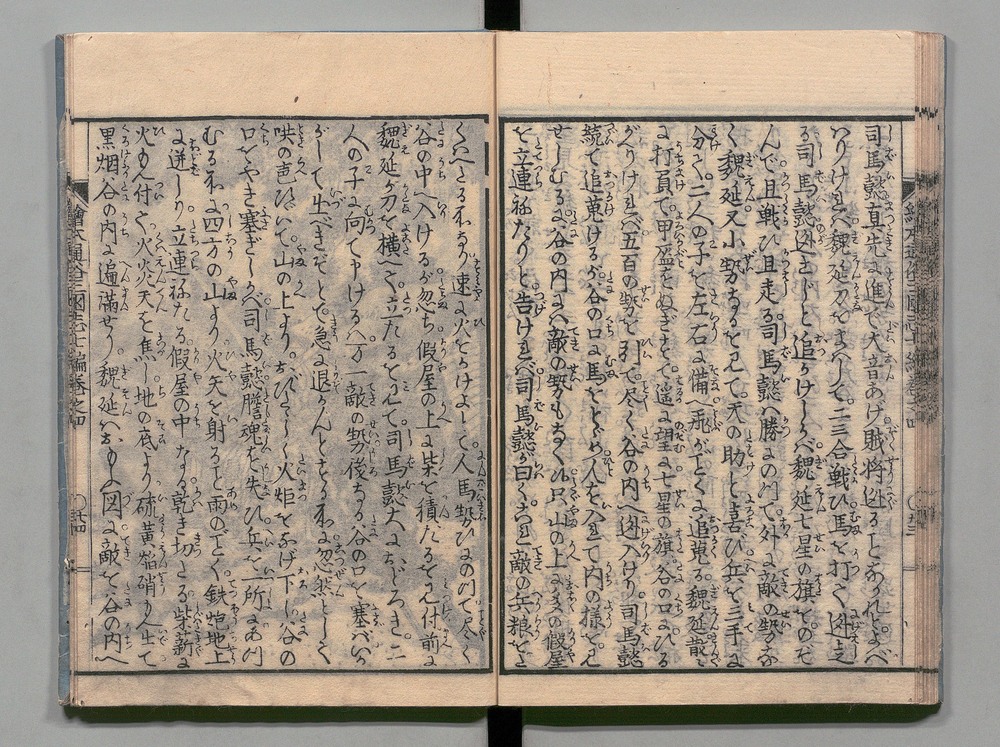 司馬懿真先に進で大音あげ賊将迯ることなかれとよべ
はりければ魏延刀をまはして二三合戦ひ馬を打て迯走
る司馬懿迯さじと追かけしかば魏延七星の旗をのぞ
んで且戦ひ且走る司馬懿ハ勝にのつて外に敵の勢な
く魏延又小勢なるを見て天の助と喜び兵を三手に
分て二人の子を左右に備へ飛がごとく追蒐る魏延散〻
に打負て甲盔をぬぎすて遥に望に七星の旗谷の口にひる
がへりければ五百の勢を引て尽く谷の内へ迯入けり司馬懿
続て追蒐けるが谷の口に馬をとゞめ人を入れて内の様を見
せしむるに谷の内にハ敵の勢もなく只山の上にあまたの仮屋
を立連ねたりと告ければ司馬懿が曰くこれ敵の兵粮を
くはへたる所なり速に火をかけよとて人馬勢ひにのつて尽く
谷の中へ入けるが忽ち假屋の上に柴を積たるを見付前に
魏延が刀を横へて立たるを見て司馬懿大におどろき二
人の子に向て申けるハ万一敵の勢後なる谷の口を塞バいか
がして生べきぞとて急に退かんとする所に忽然として
哄の声ひゞいて山の上より おびたゞしく火炬をなげ下し谷の
口をやき塞ぎしかバ司馬懿膽魂を失ひ兵を一所にあつ
むる所に四方の山より火矢を射ること雨のごとく鉄炮地上
に迸しり立連ねたる假屋の中なる乾き切たる柴薪に
火もえ付て火〻天を焦し地の底より硫黄焔硝もえ出て
黒烟谷の内に遍満せり魏延ハおもふ図に敵を谷の内へ
繪本通俗三國志七編巻之四